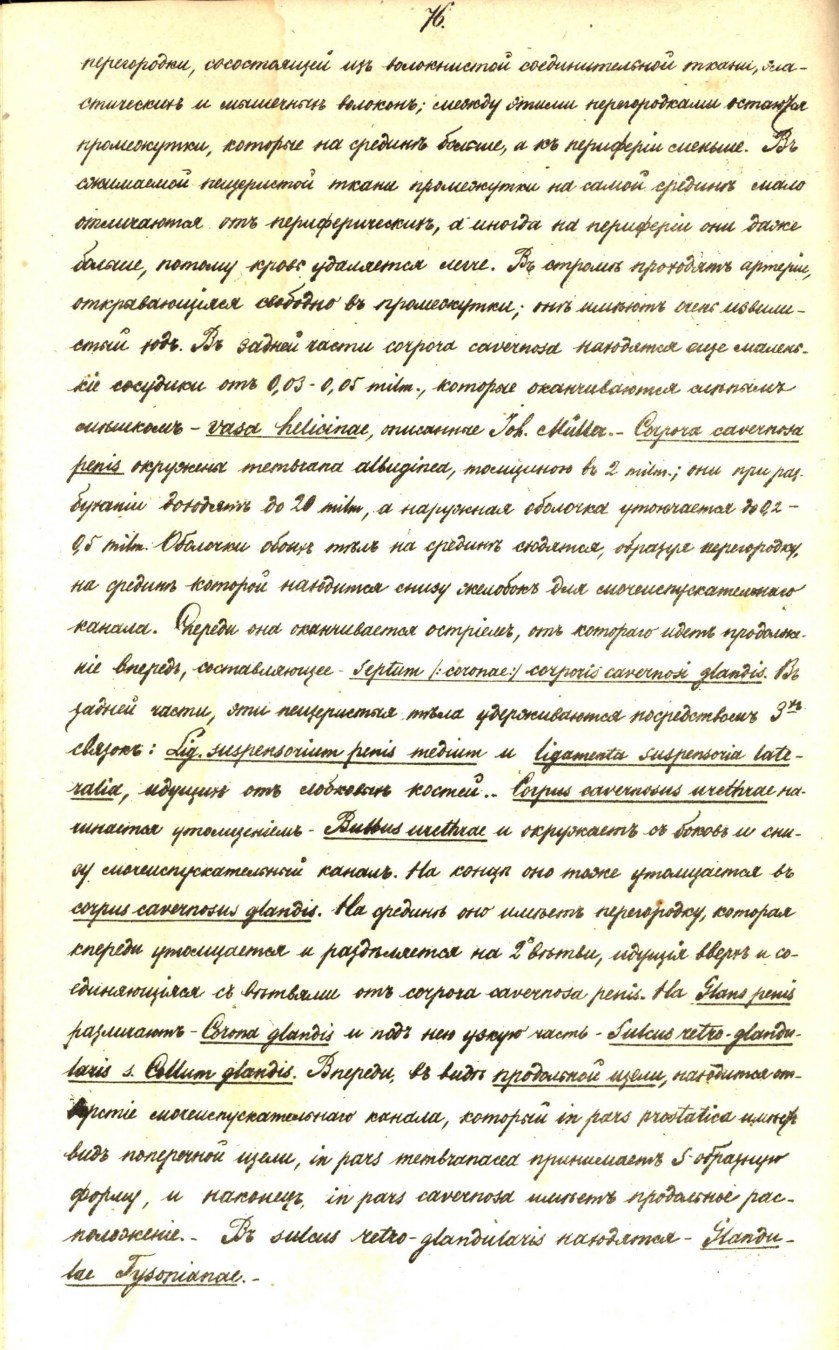 76.
перегородки, сосостоящей изъ волокнистой соединительной ткани, эла-
стическихъ и мышечныхъ волоконъ; между этими перегородками остаются
промежутки, которые на срединѣ больше, а къ периферіи меньше. Въ
сжимаемой пещеристой ткани промежутки на самой срединѣ мало
отличаются отъ периферическихъ, а иногда на периферіи они даже
больше, потому кровь удаляется легче. Въ стромѣ проходятъ артеріи,
открывающіяся свободно въ промежутки; онѣ имѣютъ очень извили-
стый ходъ. Въ задней части corpora cavernosa находятся еще малень-
кіе сосудики отъ 0,03-0,05 milm., которые оканчиваются слѣпымъ
мѣшкомъ - vasa helicinae, описанные Joh. Müller. - Corpora cavernosa
penis окружена membrana albuginea, толщиною въ 2 milm.; они при раз-
буханіи доходятъ до 20 milm, а наружная оболочка утончается до 0,2 -
0,5 milm. Оболочки обоихъ тѣлъ на срединѣ сходятся, образуя перегородку,
на срединѣ которой находится снизу желобокъ для мочеиспускательнаго
канала. Спереди она оканчивается остріемъ, отъ котораго идетъ продолже-
ніе впередъ, составляющее - septum /: coronae :/ corporis cavernosi glandis. Въ
задней части, эти пещеристыя тѣла удерживаются посредствомъ 3хъ
связокъ: Lig. suspensorium penis medium и ligamenta suspensoria late-
ralia, идущихъ отъ лобковыхъ костей. - Corpus cavernosus urethrae на-
чинается утолщеніемъ - Bulbus urethrae и окружаетъ съ боковъ и сни-
зу мочеиспускательный каналъ. На концѣ оно тоже утолщается въ
corpus cavernosus glandis. На срединѣ оно имѣетъ перегородку, которая
кпереди утолщается и раздѣляется на 2 вѣтви, идущія вверхъ и со-
единяющіяся съ вѣтвями отъ corpora cavernosa penis. На Glans penis
различаютъ - Corona glandis и подъ нею узкую часть - Sulcus retro-glandu-
laris s. Collum glandis. Впереди, въ видѣ продольной щели, находится от-
верстіе мочеиспускательнаго канала, который in pars prostatica имѣетъ
видъ поперечной щели, in pars membranacea принимаетъ S-образную
форму, и наконецъ, in pars cavernosa имѣетъ продольное рас-
положеніе. - Въ sulcus retro-glandularis находятся - Glandu-
lae Tysonianae. -